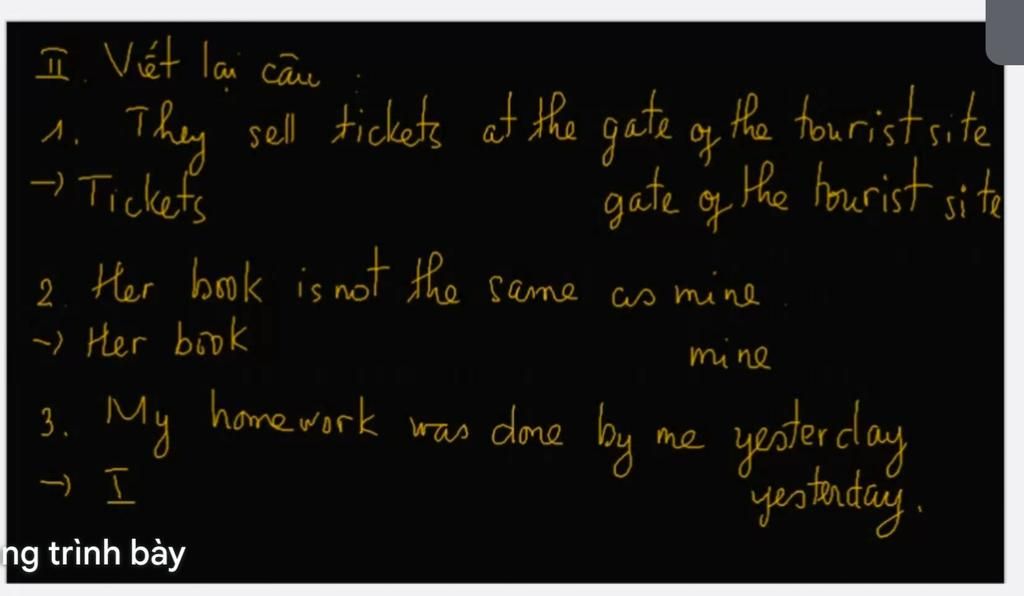 II. Viết lại câu :
1. They sell tickets at the gate of the tourist site
→ Tickets gate of the tourist site
2. Her book is not the same as mine.
→ Her book mine
3. My homework was done by me yesterday
→ I yesterday.
ng trình bày